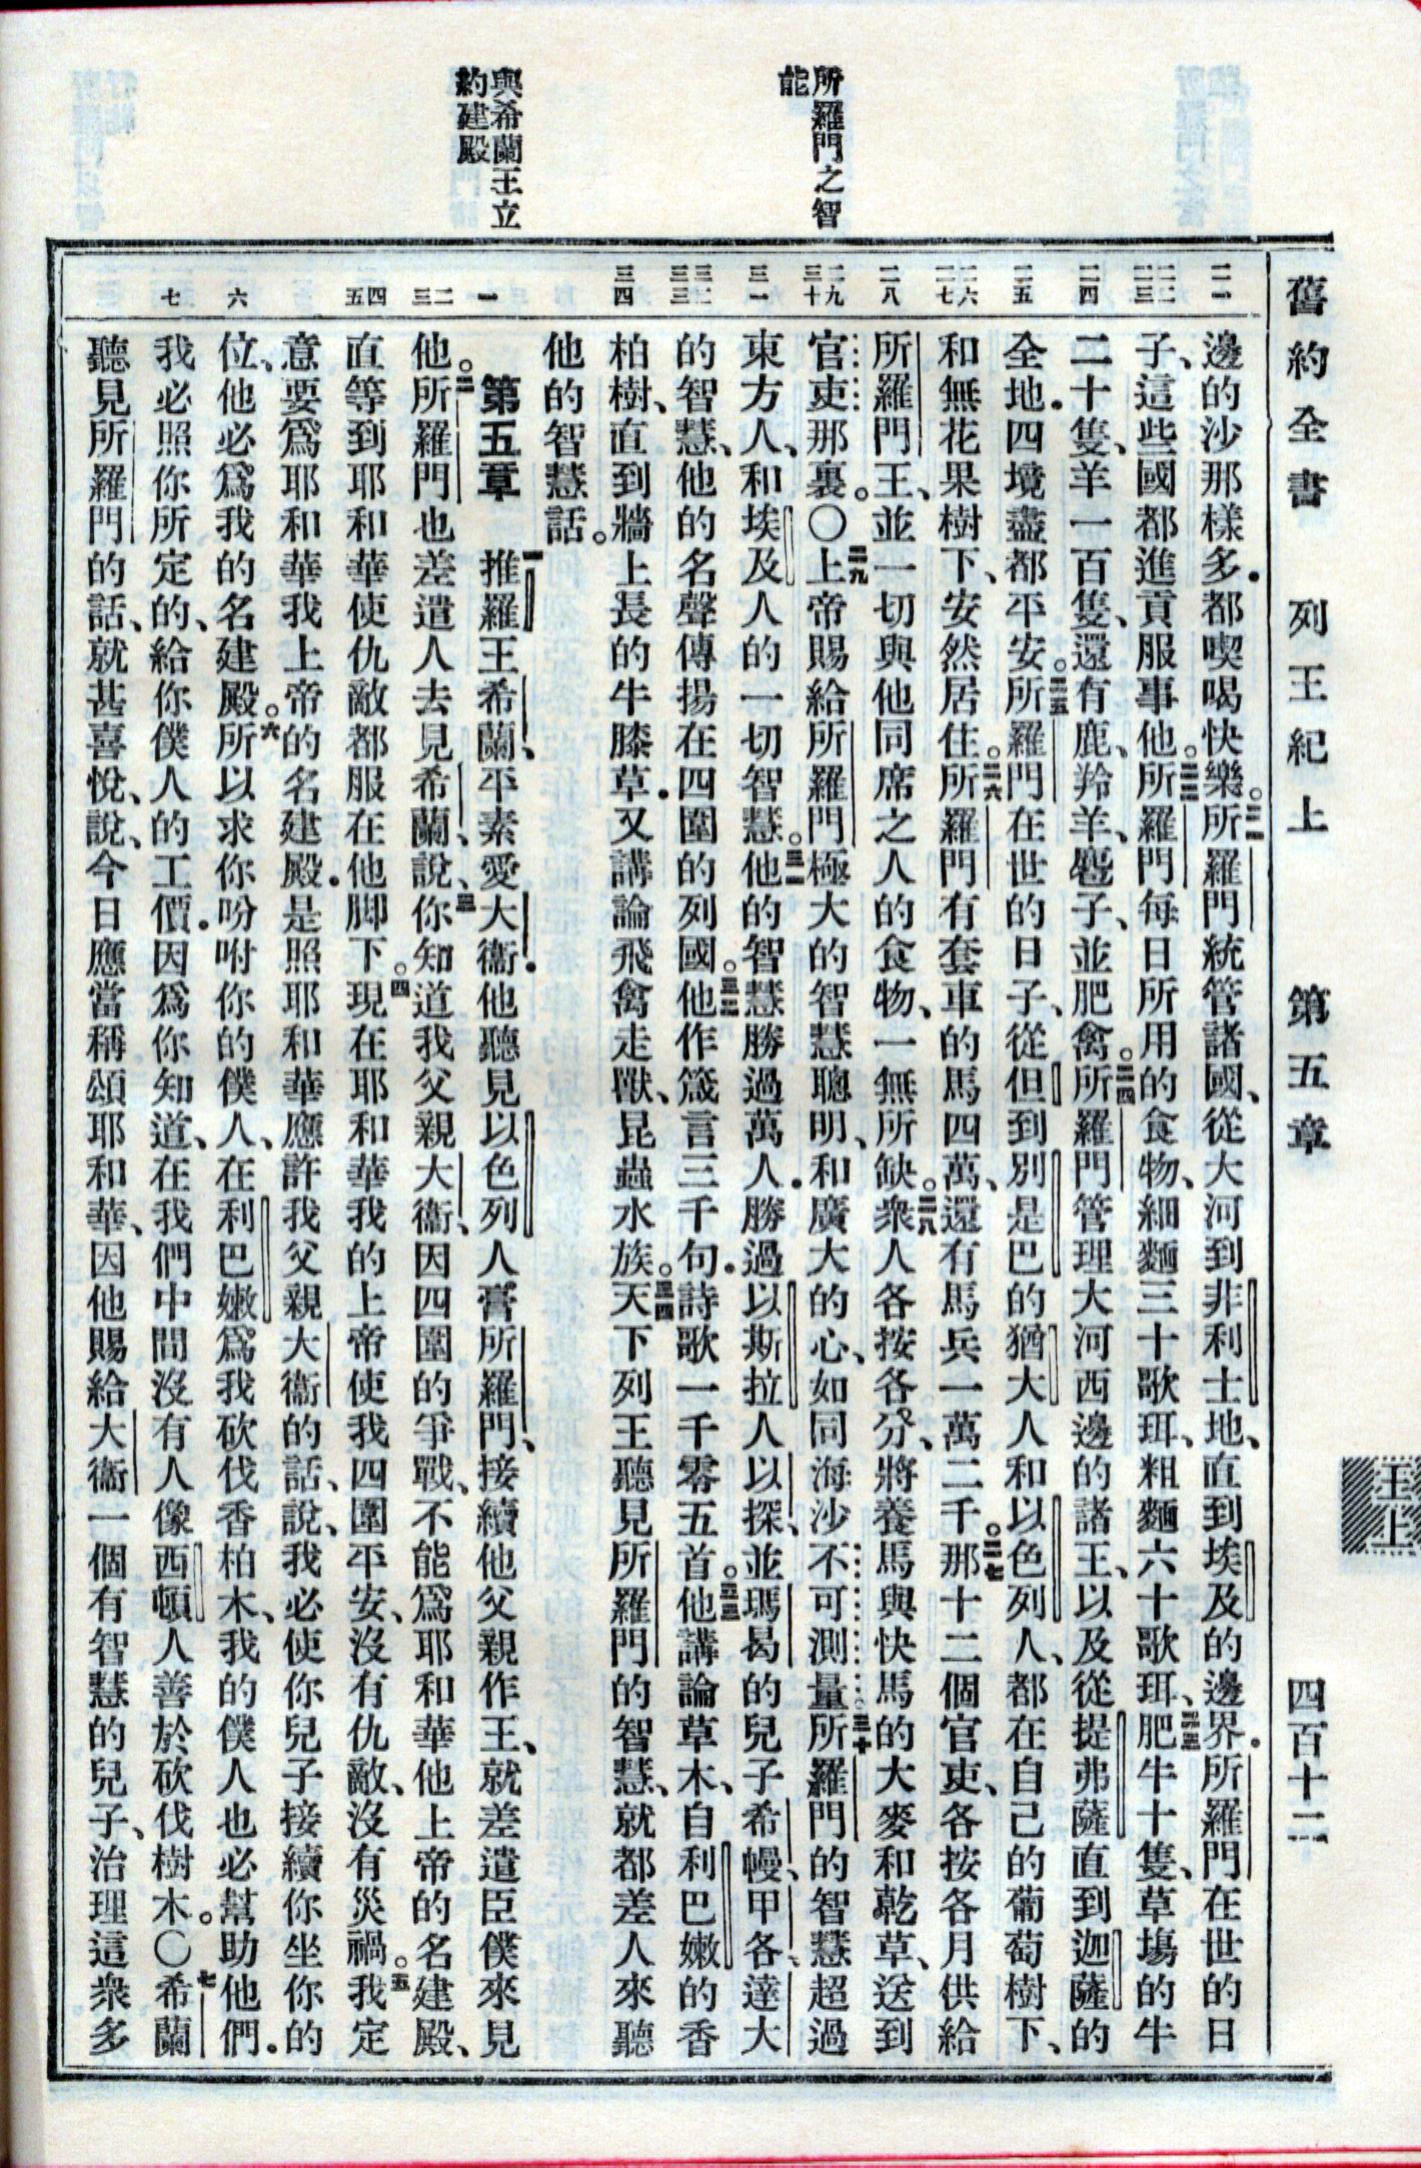 所羅門之智
能
與希蘭王立
約建殿
舊約全書 列王紀上 第五章 四百十二
王上
二一
二二 二三
二四
二五
二六 二七
二八
二九 三十
三一
三二 三三
三四
一
二 三
四 五
六
七
邊的沙那樣多．都喫喝快樂。二一所羅門統管諸國、從大河到非利士地、直到埃及的邊界．所羅門在世的日
子、這些國都進貢服事他。二二所羅門每日所用的食物、細麵三十歌珥、粗麵六十歌珥、二三肥牛十隻、草塲的牛
二十隻、羊一百隻、還有鹿、羚羊、麅子、並肥禽。二四所羅門管理大河西邊的諸王、以及從提弗薩直到迦薩的
全地．四境盡都平安。二五所羅門在世的日子、從但到別是巴的猶大人和以色列人、都在自己的葡萄樹下、
和無花果樹下、安然居住。二六所羅門有套車的馬四萬、還有馬兵一萬二千。二七那十二個官吏、各按各月供給
所羅門王、並一切與他同席之人的食物、一無所缺。二八衆人各按各分、將養馬與快馬的大麥和乾草、送到
官吏那裏。〇二九上帝賜給所羅門極大的智慧聰明、和廣大的心、如同海沙不可測量。三十所羅門的智慧超過
東方人、和埃及人的一切智慧。三一他的智慧勝過萬人．勝過以斯拉人以探、並瑪曷的兒子希幔、甲各、達大
的智慧、他的名聲傳揚在四圍的列國。三二他作箴言三千句．詩歌一千零五首。三三他講論草木、自利巴嫩的香
柏樹、直到牆上長的牛膝草．又講論飛禽走獸、昆蟲水族。三四天下列王聽見所羅門的智慧、就都差人來聽
他的智慧話。
第五章 一推羅王希蘭、平素愛大衞．他聽見以色列人膏所羅門、接續他父親作王、就差遣臣僕來見
他。二所羅門也差遣人去見希蘭、說、三你知道我父親大衞、因四圍的爭戰、不能爲耶和華他上帝的名建殿、
直等到耶和華使仇敵都服在他脚下。四現在耶和華我的上帝使我四圍平安、沒有仇敵、沒有災禍。五我定
意要爲耶和華我上帝的名建殿．是照耶和華應許我父親大衞的話、說、我必使你兒子接續你坐你的
位、他必爲我的名建殿。六所以求你吩咐你的僕人、在利巴嫩爲我砍伐香柏木、我的僕人也必幫助他們．
我必照你所定的、給你僕人的工價．因爲你知道、在我們中間沒有人像西頓人善於砍伐樹木。〇七希蘭
聽見所羅門的話、就甚喜悅、說、今日應當稱頌耶和華、因他賜給大衞一個有智慧的兒子、治理這衆多